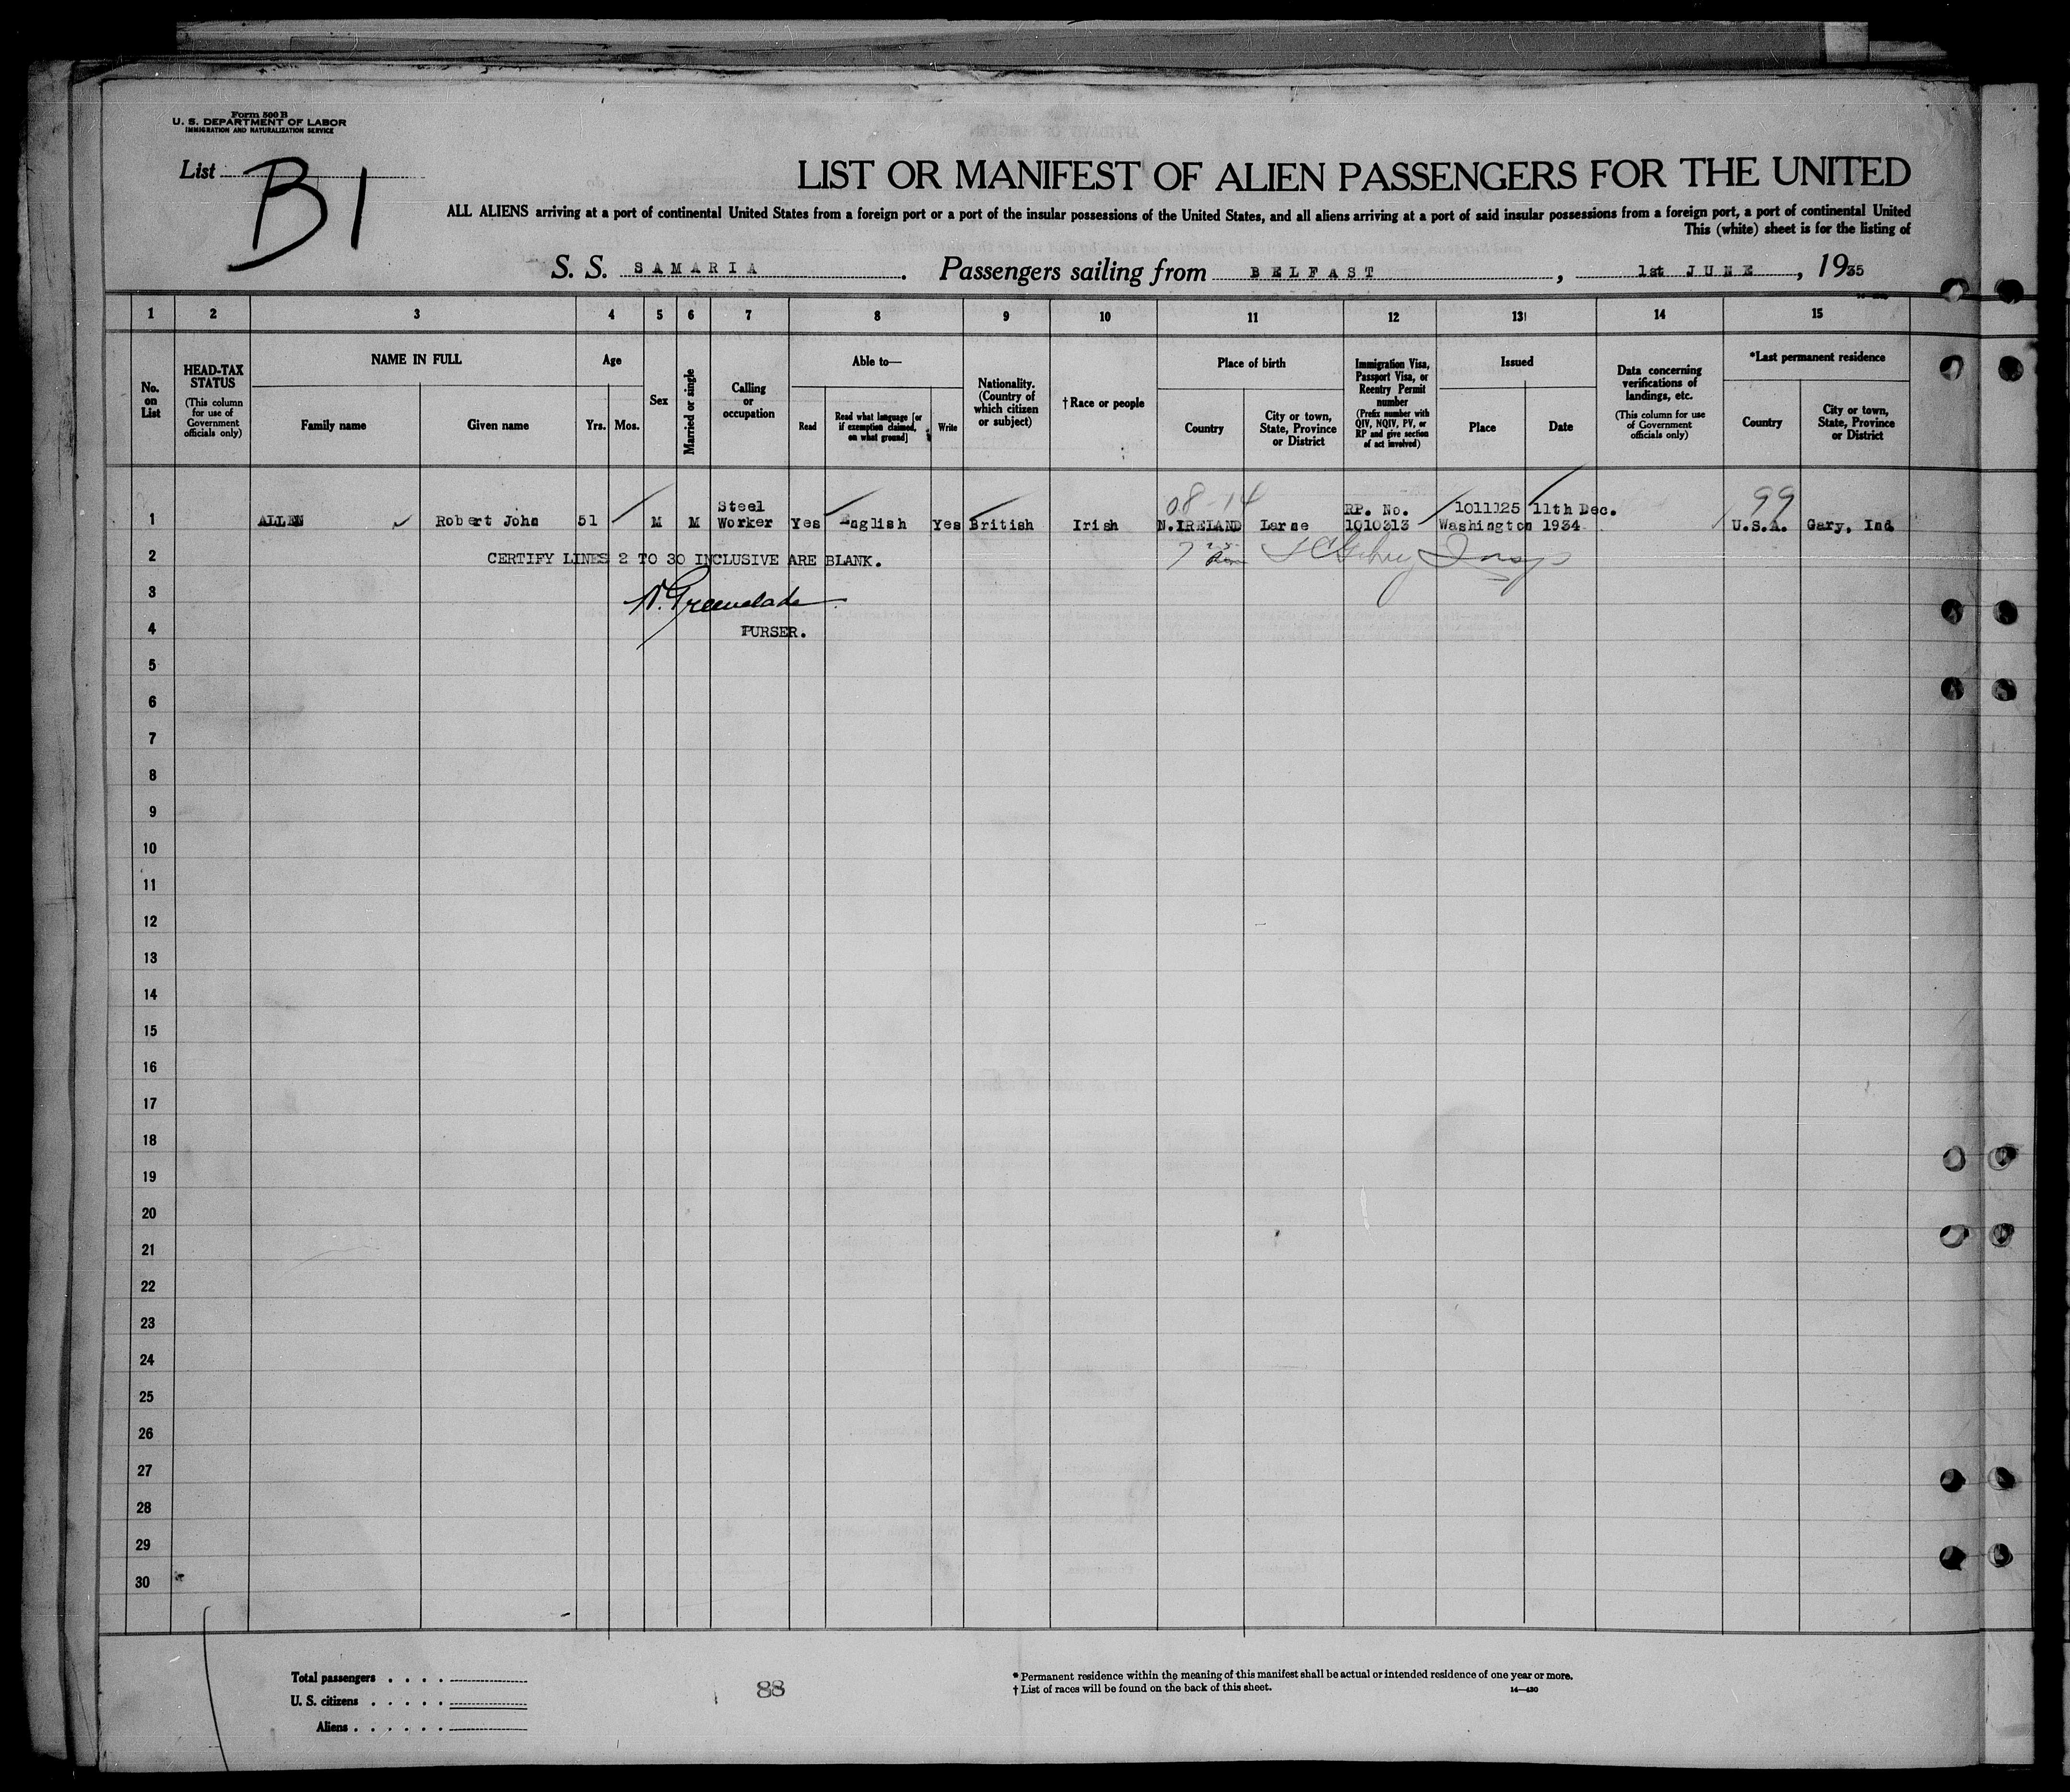 Form 500 B
U. S. DEPARTMENT OF LABOR
IMMIGRATION AND NATURALIZATION SERVICE
List B1
LIST OR MANIFEST OF ALIEN PASSENGERS FOR THE UNITED
ALL ALIENS arriving at a port of continental United States from a foreign port or a port of the insular possessions of the United States, and all aliens arriving at a port of said insular possessions from a foreign port, a port of continental United
This (white) sheet is for the listing of
S. S. SAMARIA. Passengers sailing from BELFAST, 1st JUNE, 1935
1 2 3 4 5 6 7 8 9 10 11 12 13 14 15
No. on List
HEAD-TAX STATUS (This column for use of Government officials only)
NAME IN FULL
Family name
Given name
Age
Yrs. Mos.
Sex
Married or single
Calling or occupation
Able to—
Read
Read what language [or if exemption claimed, on what ground]
Write
Nationality. (Country of which citizen or subject)
† Race or people
Place of birth
Country
City or town, State, Province or District
Immigration Visa, Passport Visa, or Reentry Permit number (Prefix number with QIV, NQIV, PV, or RP and give section of act involved)
Issued
Place
Date
Data concerning verifications of landings, etc. (This column for use of Government officials only)
*Last permanent residence
Country
City or town, State, Province or District
08-14 99
Steel RP. No. 1011125 11th Dec.
1 ALLEN Robert John 51 M M Worker Yes English Yes British Irish N.IRELAND Larne 1010313 Washington 1934 U.S.A. Gary, Ind
2 CERTIFY LINES 2 TO 30 INCLUSIVE ARE BLANK.
3
4 PURSER.
5
6
7
8
9
10
11
12
13
14
15
16
17
18
19
20
21
22
23
24
25
26
27
28
29
30
Total passengers
U. S. citizens
Aliens
88
* Permanent residence within the meaning of this manifest shall be actual or intended residence of one year or more.
† List of races will be found on the back of this sheet.
14—430